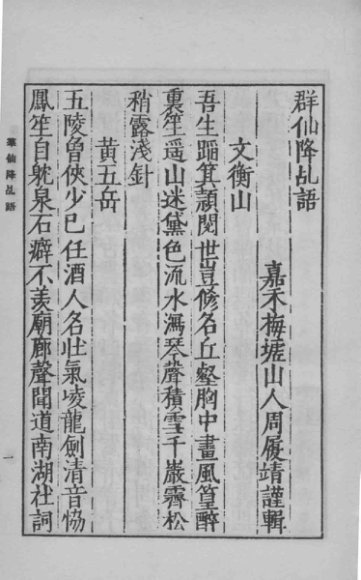 群仙降乩語
嘉禾梅墟山人周履靖謹輯
文衡山
吾生踊箕潁閱世豈修名丘壑胸中畫風篁醉
裏笙遥山迷黛色流水瀉琴聲積雪千巖霽松
稍露淺針
黄五岳
五陵曾俠少已任酒人名壯氣凌龍劍清音恊
鳳笙自躭泉石癖不羨廟廊聲聞道南湖社詞
羣仙降乩語
一